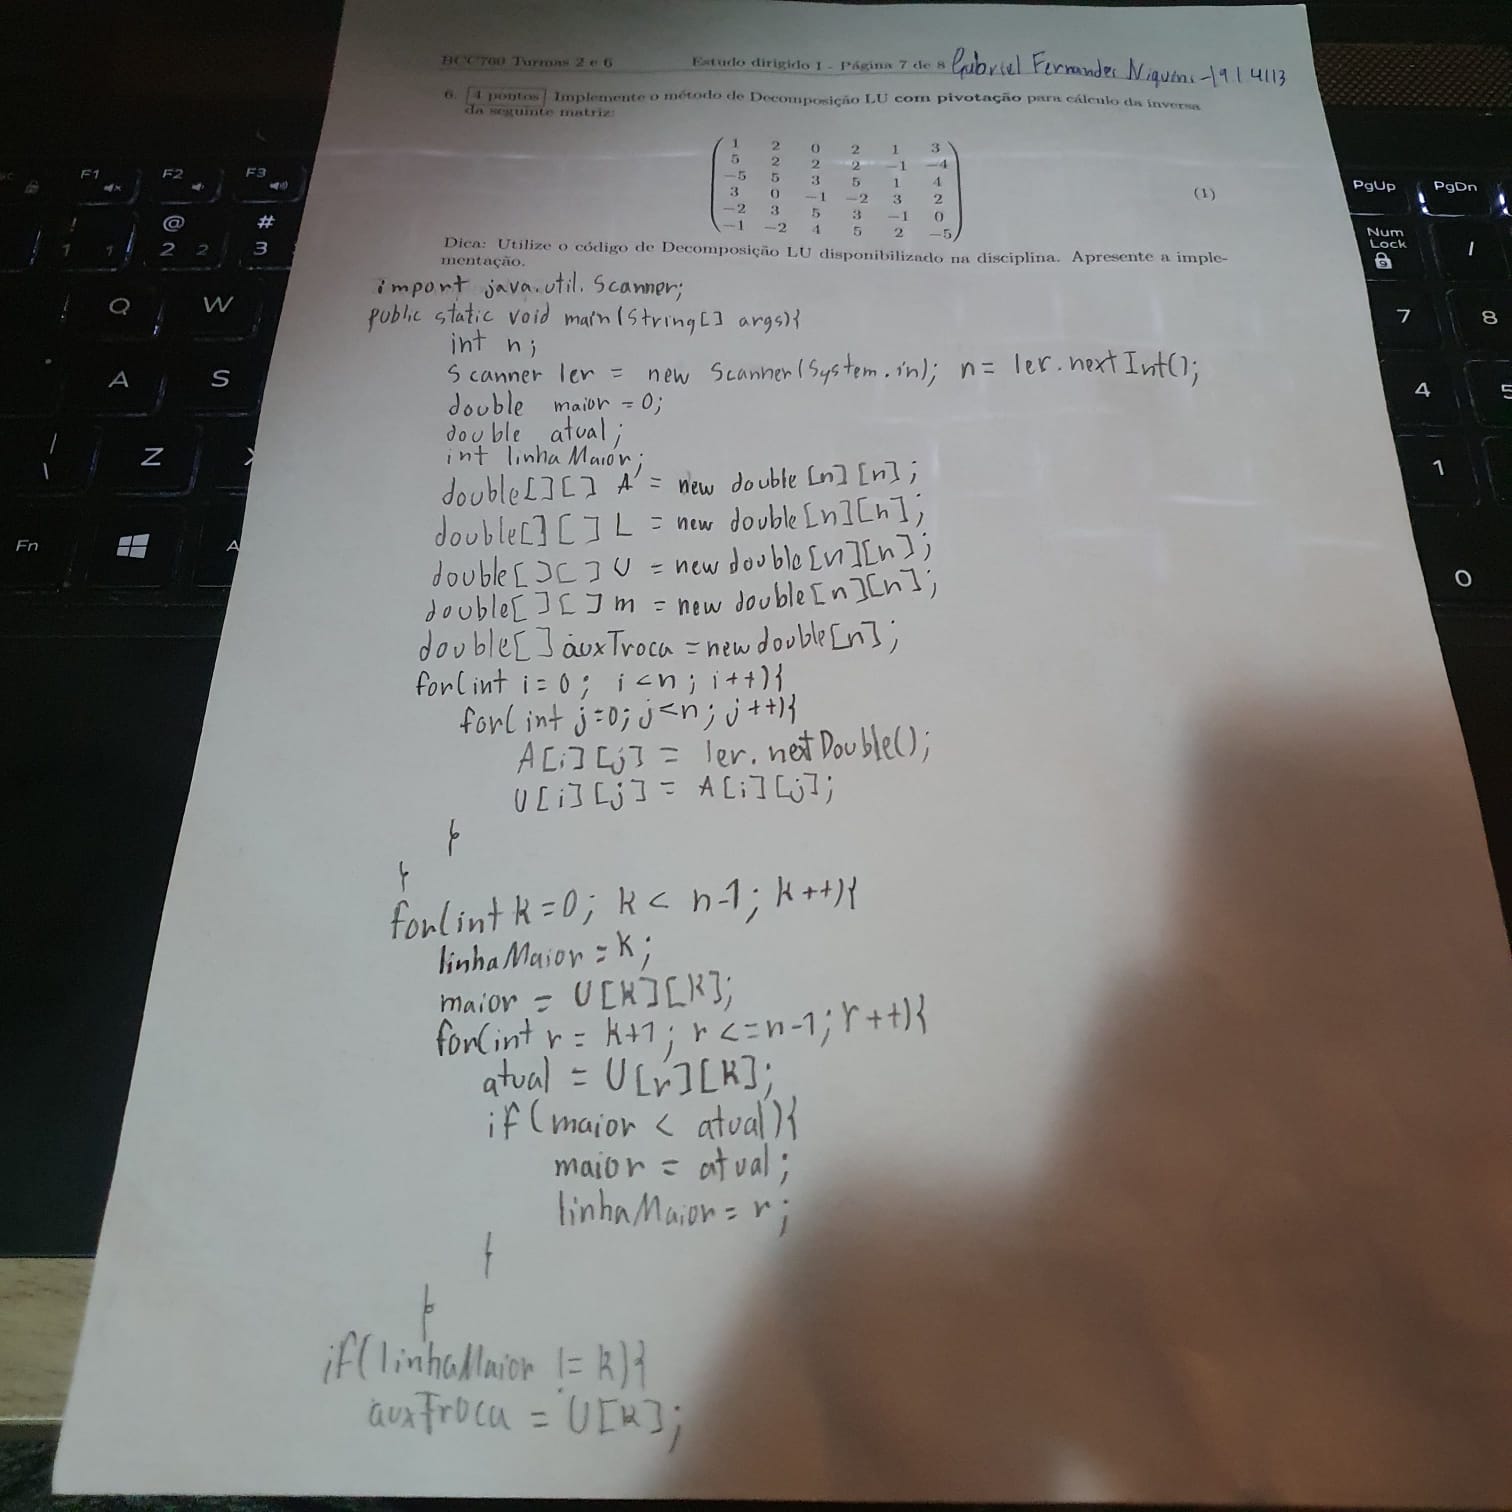 BCC760 Turmas 2 e 6 Estudo dirigido 1 - Página 7 de 8 Gabriel Fernandes Niquini - 19 1 4113
6. 4 pontos Implemente o método de Decomposição LU com pivotação para cálculo da inversa
da seguinte matriz:
1 2 0 2 1 3
5 2 2 2 −1 −4
−5 5 3 5 1 4
3 0 −1 −2 3 2
−2 3 5 3 −1 0
−1 −2 4 5 2 −5
(1)
Dica: Utilize o código de Decomposição LU disponibilizado na disciplina. Apresente a imple-
mentação.
import java.util.Scanner;
public static void main(String[] args){
int n;
Scanner ler = new Scanner(System.in); n = ler.nextInt();
double maior = 0;
double atual;
int linhaMaior;
double[][] A = new double[n][n];
double[][] L = new double[n][n];
double[][] U = new double[n][n];
double[][] m = new double[n][n];
double[] auxTroca = new double[n];
for(int i = 0; i < n; i++){
for(int j = 0; j < n; j++){
A[i][j] = ler.netDouble();
U[i][j] = A[i][j];
}
}
for(int k = 0; k < n-1; k++){
linhaMaior = k;
maior = U[k][k];
for(int r = k+1; r <= n-1; r++){
atual = U[r][k];
if(maior < atual){
maior = atual;
linhaMaior = r;
}
}
if(linhaMaior != k){
auxTroca = U[k];
F1
F2
F3
!
1 1
@
2 2
#
3
Q
W
A
S
|
\
Z
Fn
A
PgUp
PgDn
Num
Lock
/
7
8
4
5
1
0